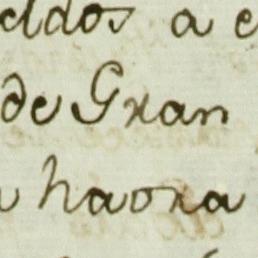 eldos a e
de Gran
haora